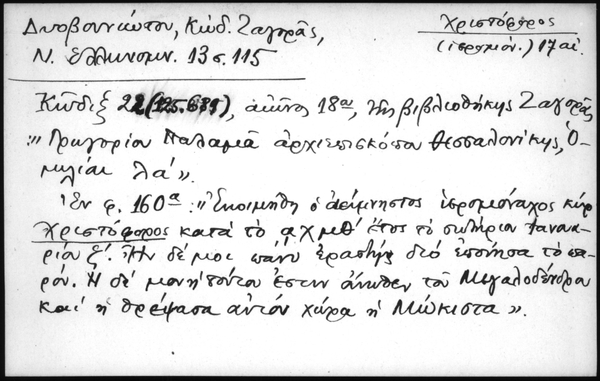 Δυοβουνιώτου, Κώδ. Ζαγορᾶς,
Ν. Ἑλληνομν. 13 σ. 115
Χριστόφορος
(ἱερομόν.) 17 αἰ.
Κῶδιξ 22 , αἰῶνος 18ου, τῆς βιβλιοθήκης Ζαγορᾶς
:"Γρηγορίου Παλαμᾶ ἀρχιεπισκόπου Θεσσαλονίκης, Ὁ-
μιλίαι λα΄".
Ἐν φ. 160α: "Ἐκοιμήθη ὁ ἀείμνηστος ἱερομόναχος κὺρ
Χριστόφορος κατὰ τὸ ͵αχμθ΄ ἔτος τὸ σωτήριον Ἰαννουα-
ρίου ξ΄. Ἦν δέ μοι πάνυ ἐραστής διὸ ἐποίησα τὸ πα-
ρόν. Ἡ δὲ μονὴ τούτου ἐστιν ἄνωθεν τοῦ Μεγαλοδένδρου
καὶ ἡ θρέψασα αὐτόν χώρα ἡ Μώκιστα".